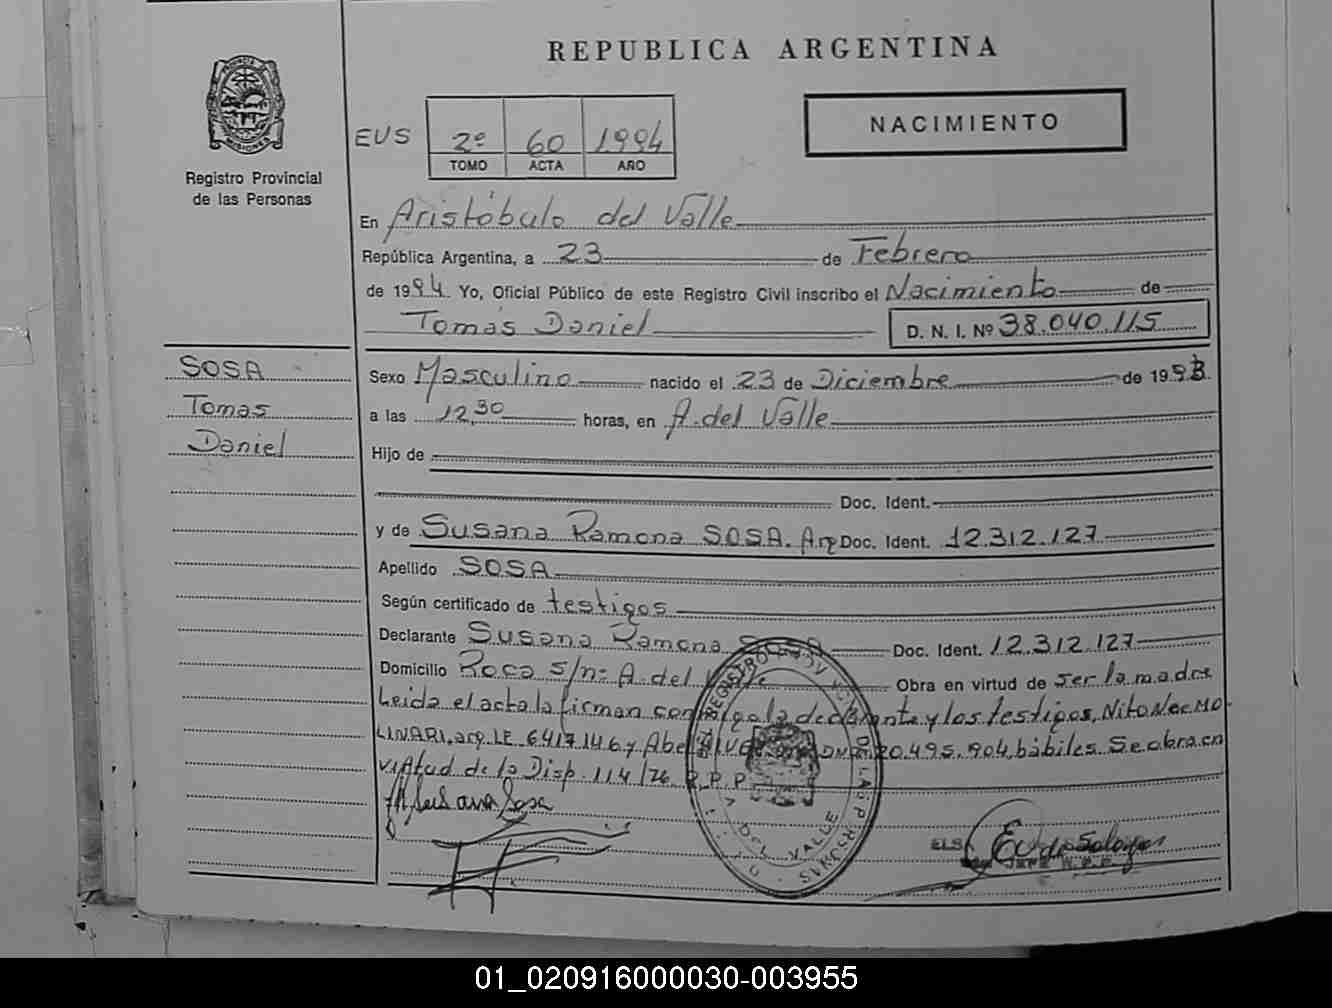 REPUBLICA ARGENTINA
PROVINCIA DE MISIONES
Registro Provincial
de las Personas
EUS 2º 60 1994
TOMO ACTA AÑO
NACIMIENTO
En Aristóbulo del Valle
República Argentina, a 23 de Febrero
de 1994 Yo, Oficial Público de este Registro Civil inscribo el Nacimiento de
Tomás Daniel D. N. I. Nº 38.040.115
SOSA
Tomas
Daniel
Sexo Masculino nacido el 23 de Diciembre de 1993
a las 12,30 horas, en A. del Valle
Hijo de
Doc. Ident.
y de Susana Ramona SOSA. Arg Doc. Ident. 12.312.127
Apellido SOSA
Según certificado de testigos
Declarante Susana Ramona SOSA Doc. Ident. 12.312.127
Domicilio Roca s/nº A. del Valle Obra en virtud de ser la madre
Leida el acta la firman conmigo la declarante y los testigos, Nito Noe MO-
LINARI, arg. LE 6417146 y Abel DNI 20.495.904, hábiles. Se obra en
virtud de la Disp. 114/76. R. P. P.
Susana Sosa
REGISTRO PROV DE LAS PERSONAS
A. DEL VALLE
ELS
JEFE R.P.P.
01_020916000030-003955